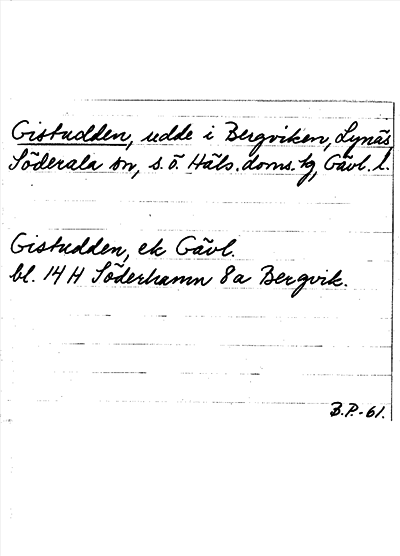 Gistudden, udde i Bergviken, Lynäs,
Söderala sn, s.ö. Häls. doms. hg, Gävl. l.
Gistudden, ek Gävl.
bl. 14 H Söderhamn 8a Bergvik.
B.P.-61.